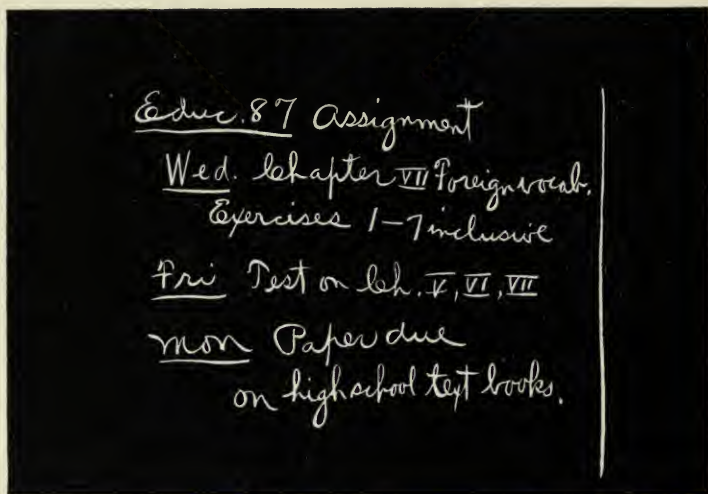 Educ. 87 Assignment
Wed. Chapter VII Foreign vocab.
Exercises 1-7 inclusive
Fri Test on Ch. V, VI, VII
Mon Paper due
on high school text books.